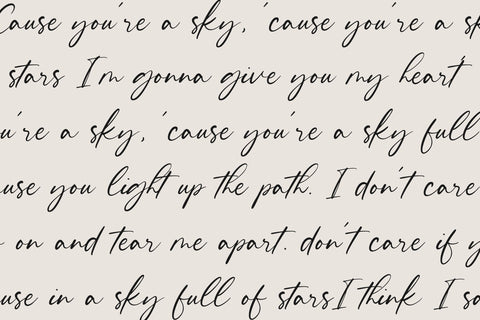 Cause you're a sky, 'cause you're a sk
stars I'm gonna give you my heart
u're a sky, 'cause you're a sky full
use you light up the path. I don't care
on and tear me apart. don't care if y
use in a sky full of stars I think I sa